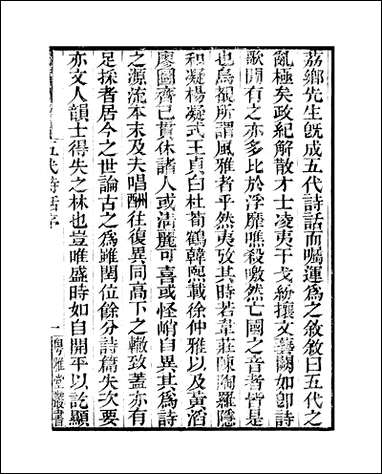 荔鄉先生旣成五代詩話而囑運為之敘敘曰五代之
亂極矣政紀解散才士凌夷干戈紛攘文藝闕如卽詩
歌閒有之亦多比於浮靡噍殺噭然亡國之音者皆是
也烏覩所謂風雅者乎然夷攷其時若韋莊陳陶羅隱
和凝楊凝式王貞白杜荀鶴韓熙載徐仲雅以及黃滔
廖圖齊己貫休諸人或淸麗可喜或怪峭自異其為詩
之源流本末及夫唱酬往復異同高下之轍致蓋亦有
足採者居今之世論古之為雖閏位餘分詩篇失次要
亦文人韻士得失之林也豈唯盛時如自開平以訖顯
五代詩話序
一
粵雅堂叢書